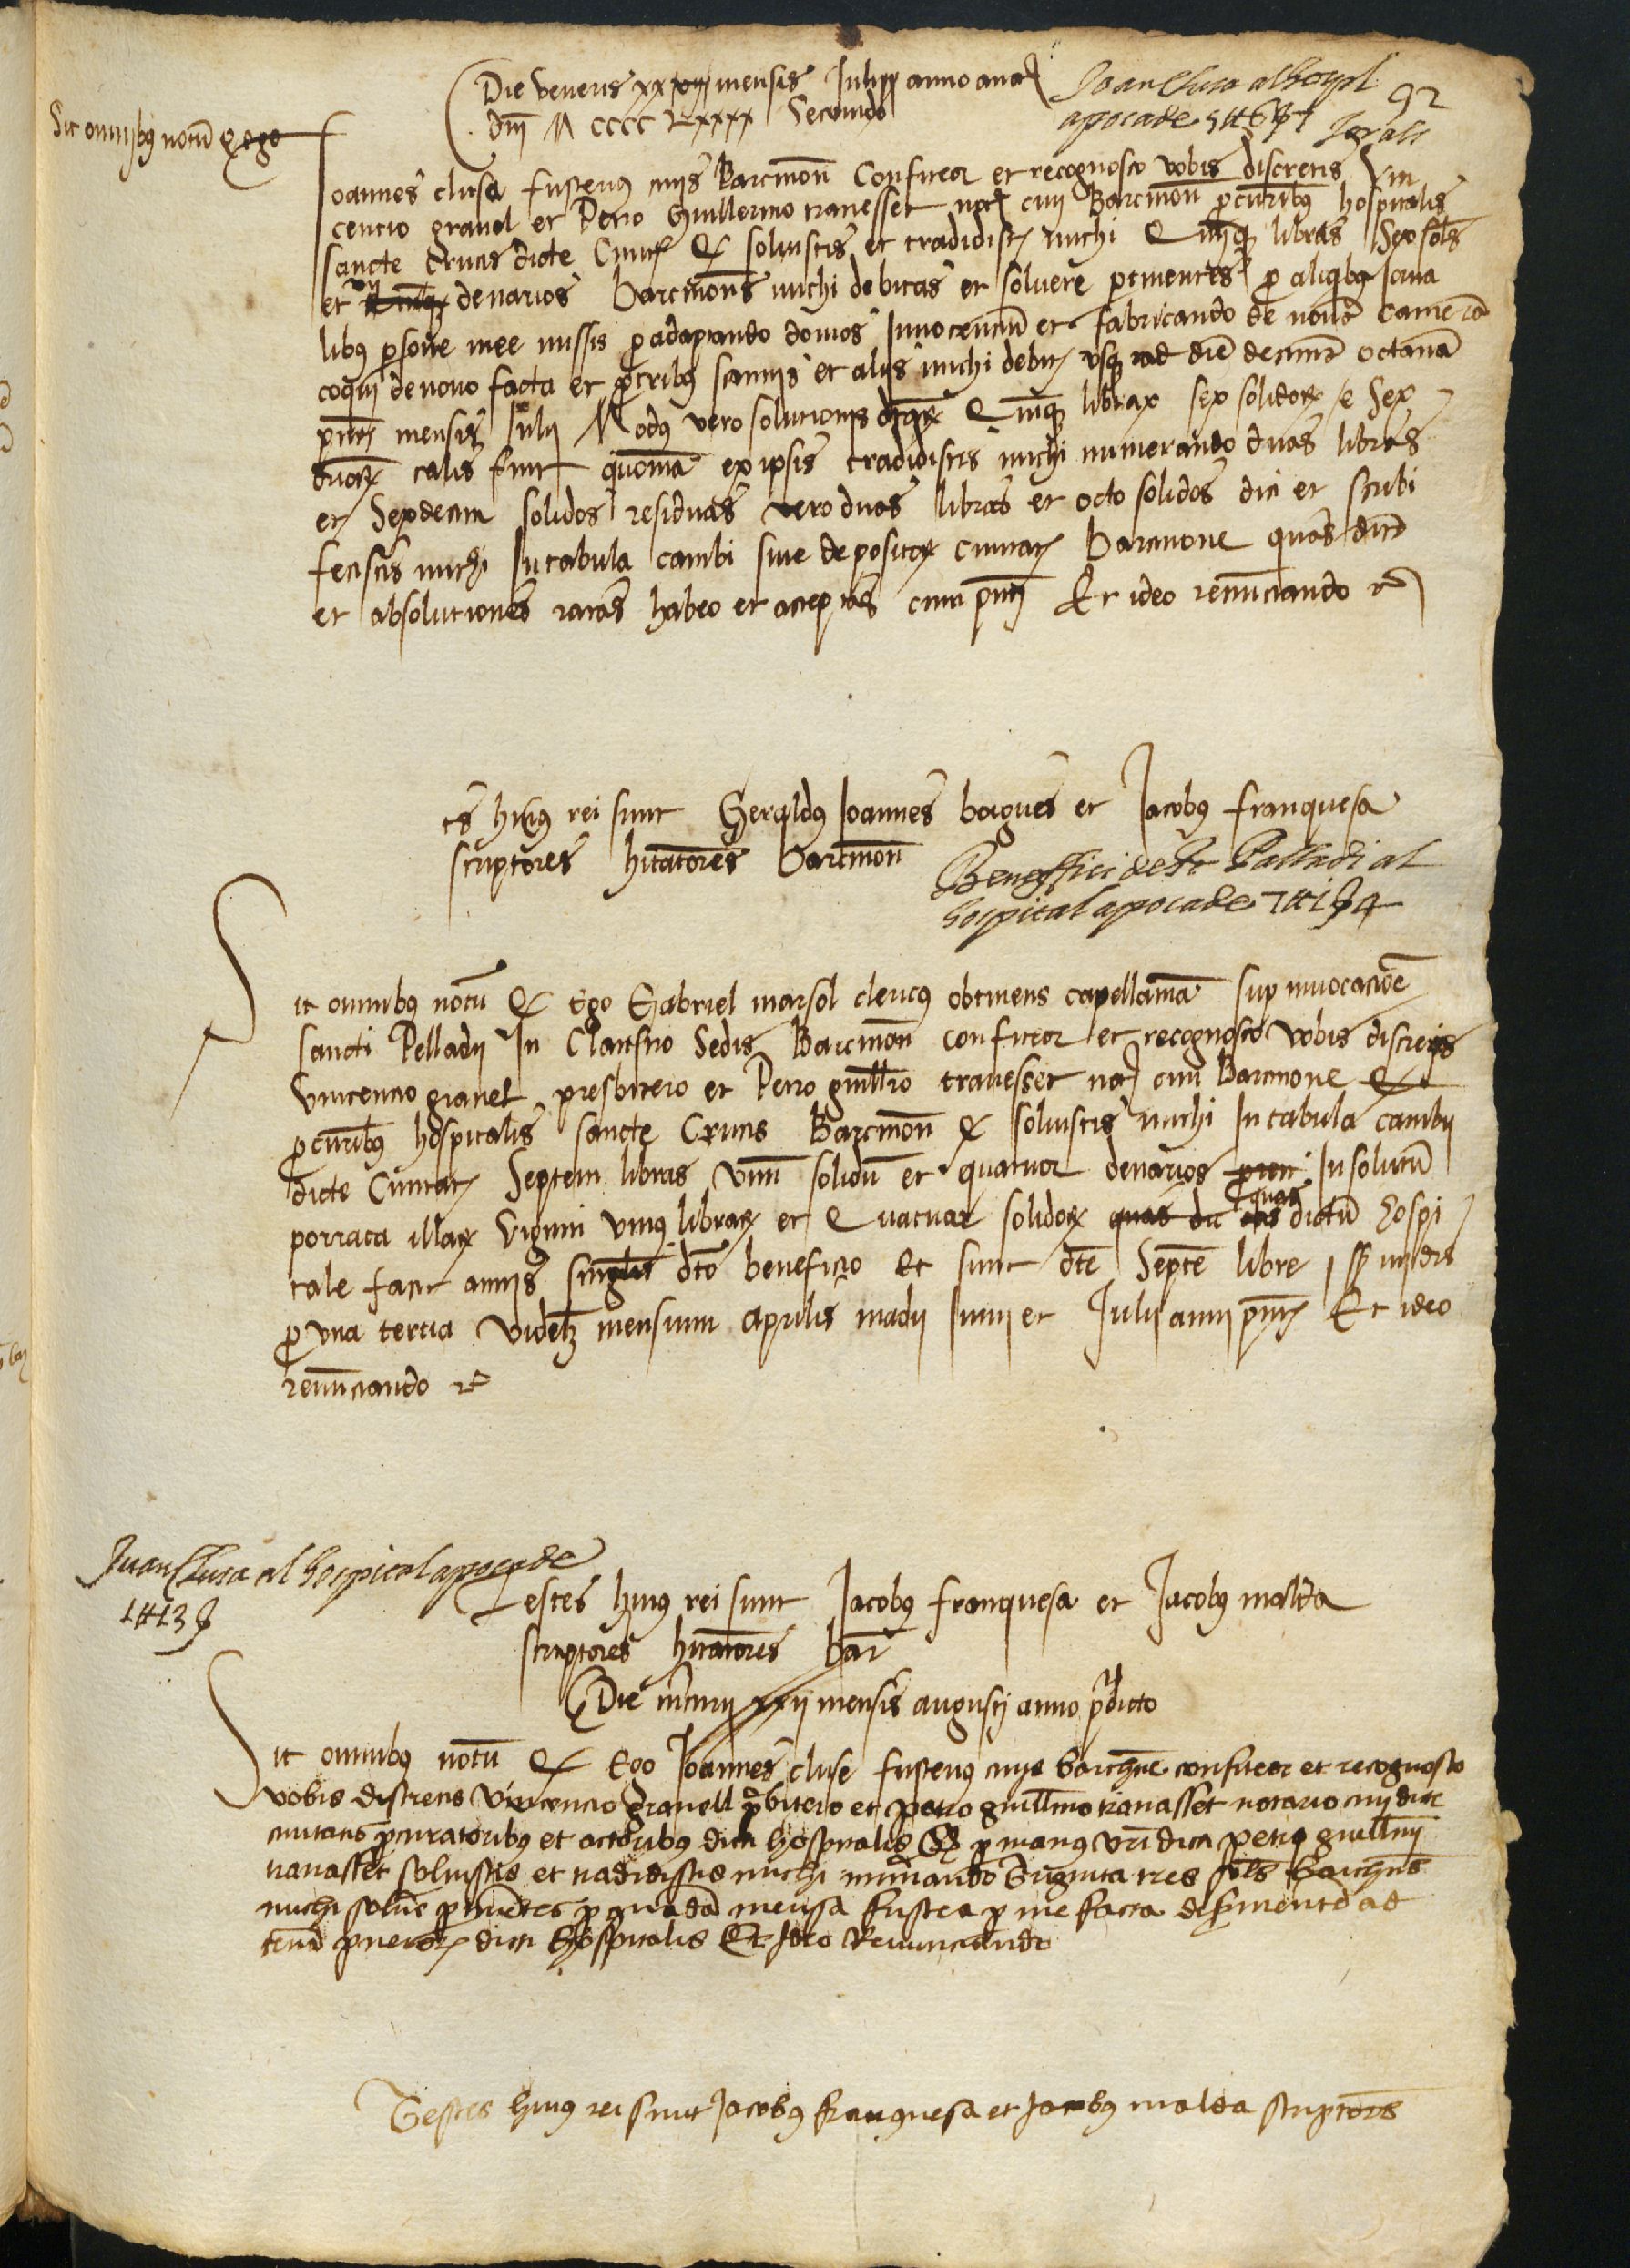 Die veneris mensis Julii anno a nat
dm M CCCC Lxxxx Secundo
Joan Clusa al hospl
apoca de 5 tt 6
92
Sit omnibus notu q ego
Joannes clusa fusterius civis Barcinon Confiteor et recognosco vobis discretis Vin
cencio granel et Petro Guillermo travesset not civi Barcinon procuribus hospitalis
sancte Crucis dicte Civit q solvistis et tradidist michi Quinque libras Sex sols
et denarios Barcinonens michi debitas et solvere pertinentes pro aliqbus iorna
libus persone mee missis pro adaptando domos Innocencium et fabricando de novo camera
coquin de novo facta et pro scannis et aliis michi debit usque ad die decima octava
pntis mensis Julii Modus vero solutionis dictar Quinque librar sex solidor e Sex
dnor talis fuit quoniam ex ipsis tradidistis michi numerando duas libras
et Sexdecim solidos residuas vero duas libras et octo solidos dici et scribi
fecistis michi In tabula cambi sive depositor Civitatis Barcinone quas dict
et absolutiones ratas habeo et acceptas cum pnti Et ideo renunciando etc
ts huius rei sunt Geraldus Joannes bagues et Jacobus franquesa
scriptores hitatores barcinon
Beneffici de St Palladi al
hospital apoca de 7 tt 1 s 4
Sit omnibus notu q Ego Gabriel marsol clericus obtinens capellania sup invocacione
sancti Pelladii In Claustro Sedis Barcinon confiteor et recognosco vobis discretis
vincencio granel presbitero et Petro guillmo travesset not civi Barcinone q
procuribus hospitalis sancte Crucis Barcinon q solvistis michi In tabula cambii
dicte Civitatis Septem libras unu solidu et quatuor denarios In solutu
porrata illar viginti unius librar et Quatuor solidor quas dic quas dictu hospi
tale facit annis singulis dto beneficio Et sunt dte Septe libre I ss iiii drs
pro una tercia videlz mensium aprilis madii Junii et Julii anni pntis Et ideo
renunciando etc
Juan Clusa al hospital apoca de
1 tt 13 s
Testes huius rei sunt Jacobus franquesa et Jacobus malda
scriptores hitatores bar
Die mercurii xxii mensis augusti anno predicto
Sit omnibus notu q Ego Joannes cluse fusterius civis barchne confiteor et recognosco
vobis discretis Vincencio granell prbitero et petro guillmo travasset notario civi dicte
civitatis procuratoribus et actoribus dicti hospitalis q per manus vri dicti petri guillmi
travasset solvistis et tradidistis michi numerando Triginta tres sols barchns
michi solve pertinetes per quada mensa fustea per me facta ad
puerorum dicti hospitalis Et Ideo Renunciando
Testes huius rei sunt Jacobus franquesa et Jacobus malda scriptores